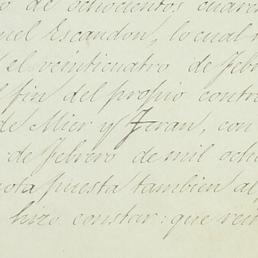 o de ochocientos cuaren
uel Escandon, lo cual
el veinticuatro de Febr
l fin del propio contr
de Mier y Teran, con
de Febrero de mil ocho
nota puesta tambien al
hizo constar: que ven